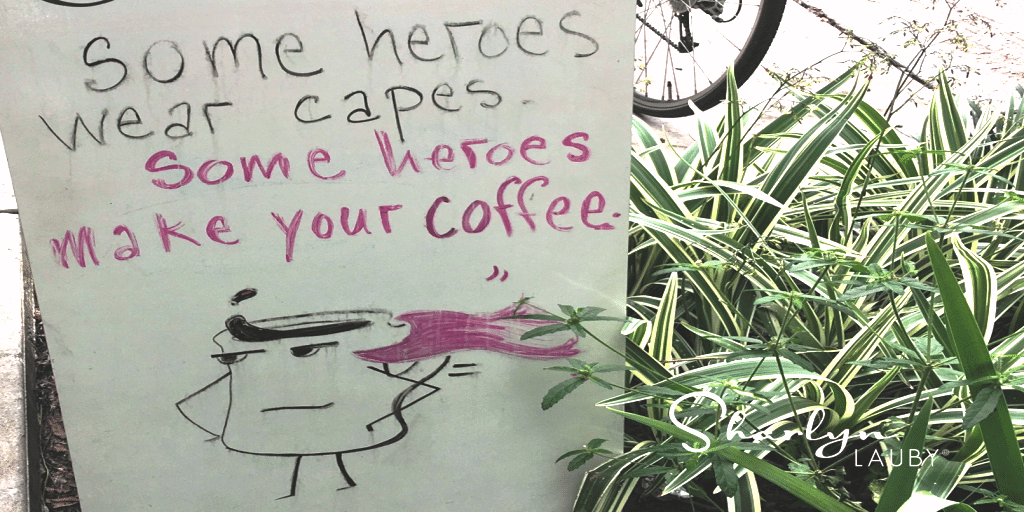 Some heroes
wear capes.
Some heroes
make your coffee.
Sharlyn
LAUBY®